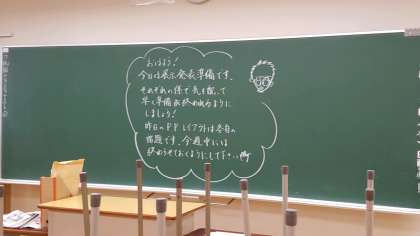 おはよう!
今日は展示発表準備です。
それぞれの係で気を配って
早く準備が終われるように
しましょう!
昨日のPPレイアウトは各自の
宿題です。今週中には
終わらせておくようにして下さい